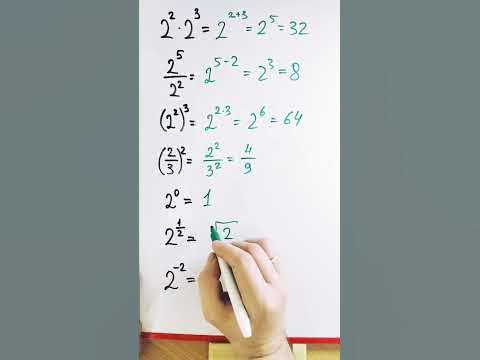 2² · 2³ = 2²⁺³ = 2⁵ = 32
2⁵/2² = 2⁵⁻² = 2³ = 8
(2²)³ = 2²·³ = 2⁶ = 64
(2/3)² = 2²/3² = 4/9
2⁰ = 1
2^(1/2) = √2
2⁻² =